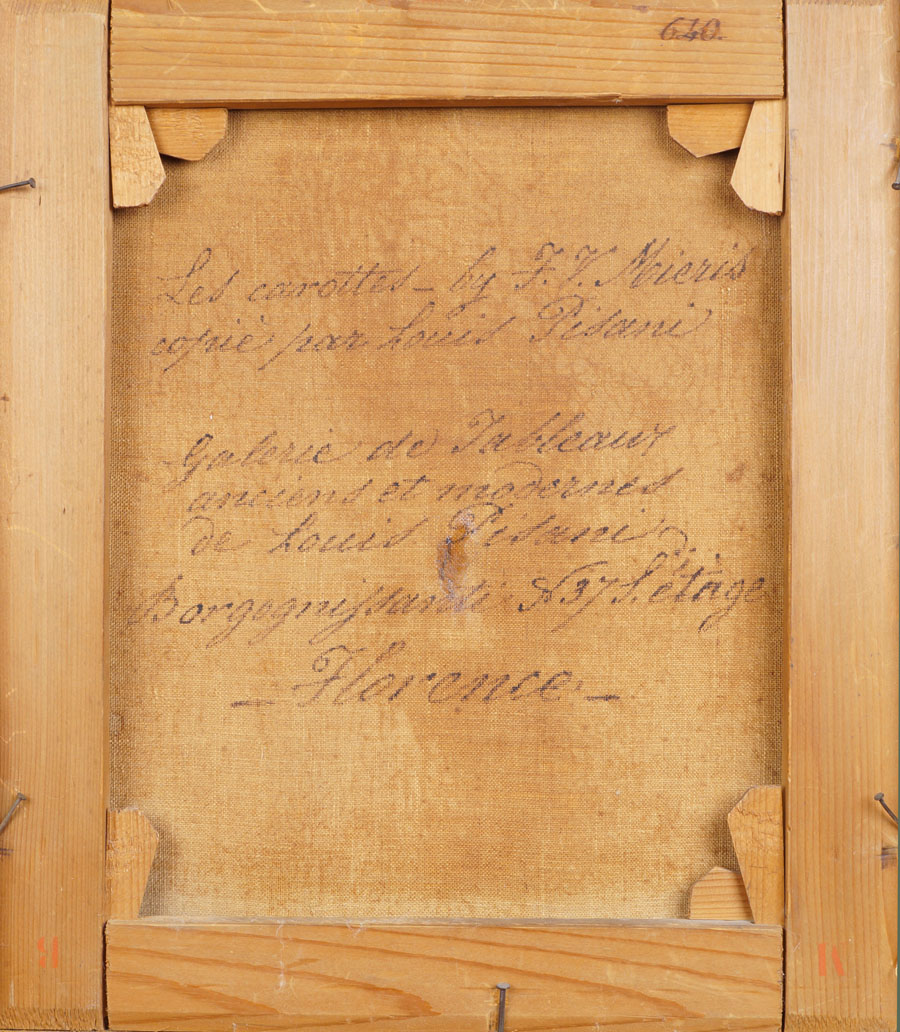 640.
Les carottes - by F. V. Mieris
copiè par Louis Pisani
Galerie de Tableaux
anciens et modernes
de Louis Pisani
Borgognissanti N 37 1. étage
- Florence -